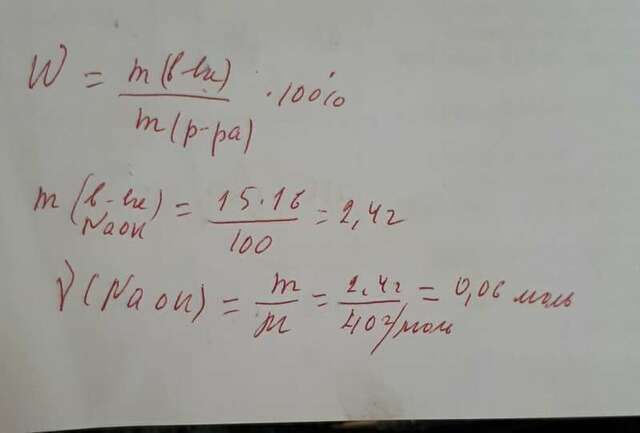 W = m(в-ва) / m(р-ра) · 100%
m(в-ва NaOH) = 15·16 / 100 = 2,4г
ν(NaOH) = m / M = 2,4г / 40г/моль = 0,06 моль